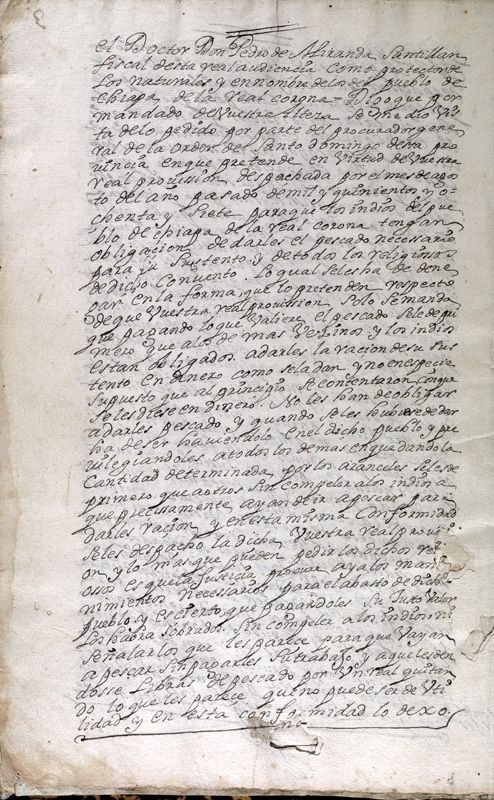 3
el Doctor Don Pedro de Miranda Santillan
fiscal desta real audiencia como protector de
Los naturales y en nombre de los del pueblo de
chiapa de la real corona Digo que por
mandado de Vuestra alteza Seme dio Vis
ta de lo pedido por parte del procurador gene
ral de la orden del Santo domingo desta pro
uincia en que pretende en Virtud de Vuestra
real prouission despachada por el mes de agos
to del año pasado de mil y quinientos y o-
chenta y Siete para que los indios del pue
blo de chiapa de la real corona tengan
obligacion de darles el pescado necessario
para su Sustento y de todos los religiosos
de dicho Convento. Lo qual Seles ha de dene
gar en la forma que lo pretenden respecto
de que Vuestra real prouission Solo Semanda
que pagando lo que Valiere el pescado Sele de pri
mero que alos de mas Vezinos y los indios
estan obligados adarles la racion de su sus
tento En dinero como seladan y no en especie
supuesto que al principio Se contentaron con que
Seles diese en dinero. No les han de obligar
a darles pescado y quando Seles hubiese de dar
ha de ser hauiendolo En el dicho pueblo y pre
uilegiandoles a todos los demas en que dandola
Cantidad determinada por los aranceles Seles de
primero que aotros Sin compeler alos indios a
que precissamente ayan de ir a pescar para
darles racion y en esta misma Conformidad
Seles despacho la dicha Vuestra real prouissi
on y lo mas que pueden pedir los dichos reli
osos es que la justicia procure aya los mante
nimientos necessarios para el abasto de dicho
pueblo y es cierto que pagandoles Su justo valor
Los habra Sobrados Sin compeler alos indios ni
Señalarlos que les parece para que Vayan
a pescar Sin pagarles Su trabajo y aquí les den
dosse Libras de pescado por Un real quitan
do lo que les parece que no puede ser de Uti
lidad y en esta conformidad lo dexo